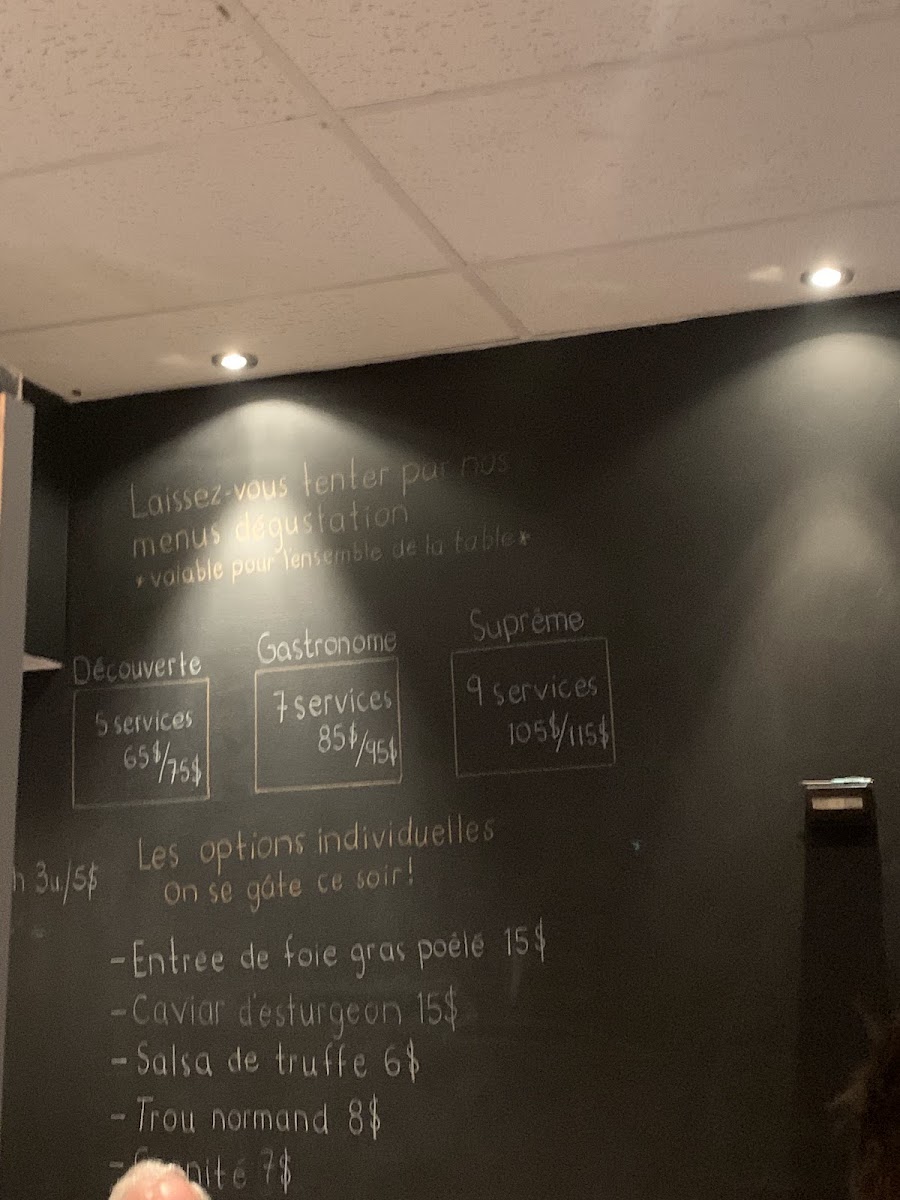 Laissez-vous tenter par nos
menus dégustation
*valable pour l'ensemble de la table*
Découverte
5 services
65$/75$
Gastronome
7 services
85$/95$
Suprême
9 services
105$/115$
Les options individuelles
on se gâte ce soir!
3u/5$
-Entrée de foie gras poêlé 15$
-Caviar d'esturgeon 15$
-Salsa de truffe 6$
-Trou normand 8$
- 7$